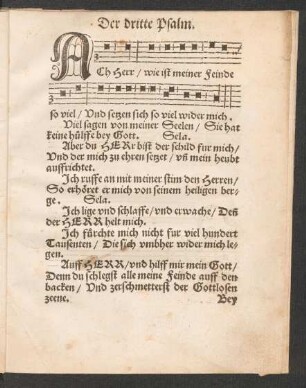 Der dritte Psalm.
ACh Herr / wie ist meiner Feinde
so viel / Vnd setzen sich so viel wider mich.
Viel sagen von meiner Seelen / Sie hat
keine hülffe bey Gott. Sela.
Aber du HERr bist der schild fur mich /
Vnd der mich zu ehren setzet / vñ mein heubt
auffrichtet.
Ich ruffe an mit meiner stim den Herren /
So erhöret er mich von seinem heiligen ber-
ge. Sela.
Ich lige vnd schlaffe / vnd erwache / Deñ
der HERR helt mich.
Ich fürchte mich nicht fur viel hundert
Tausenten / Die sich vmbher wider mich le-
gen.
Auff HERR / vnd hilff mir mein Gott /
Denn du schlegst alle meine Feinde auff den
backen / Vnd zerschmetterst der Gottlosen
zeene. Bey